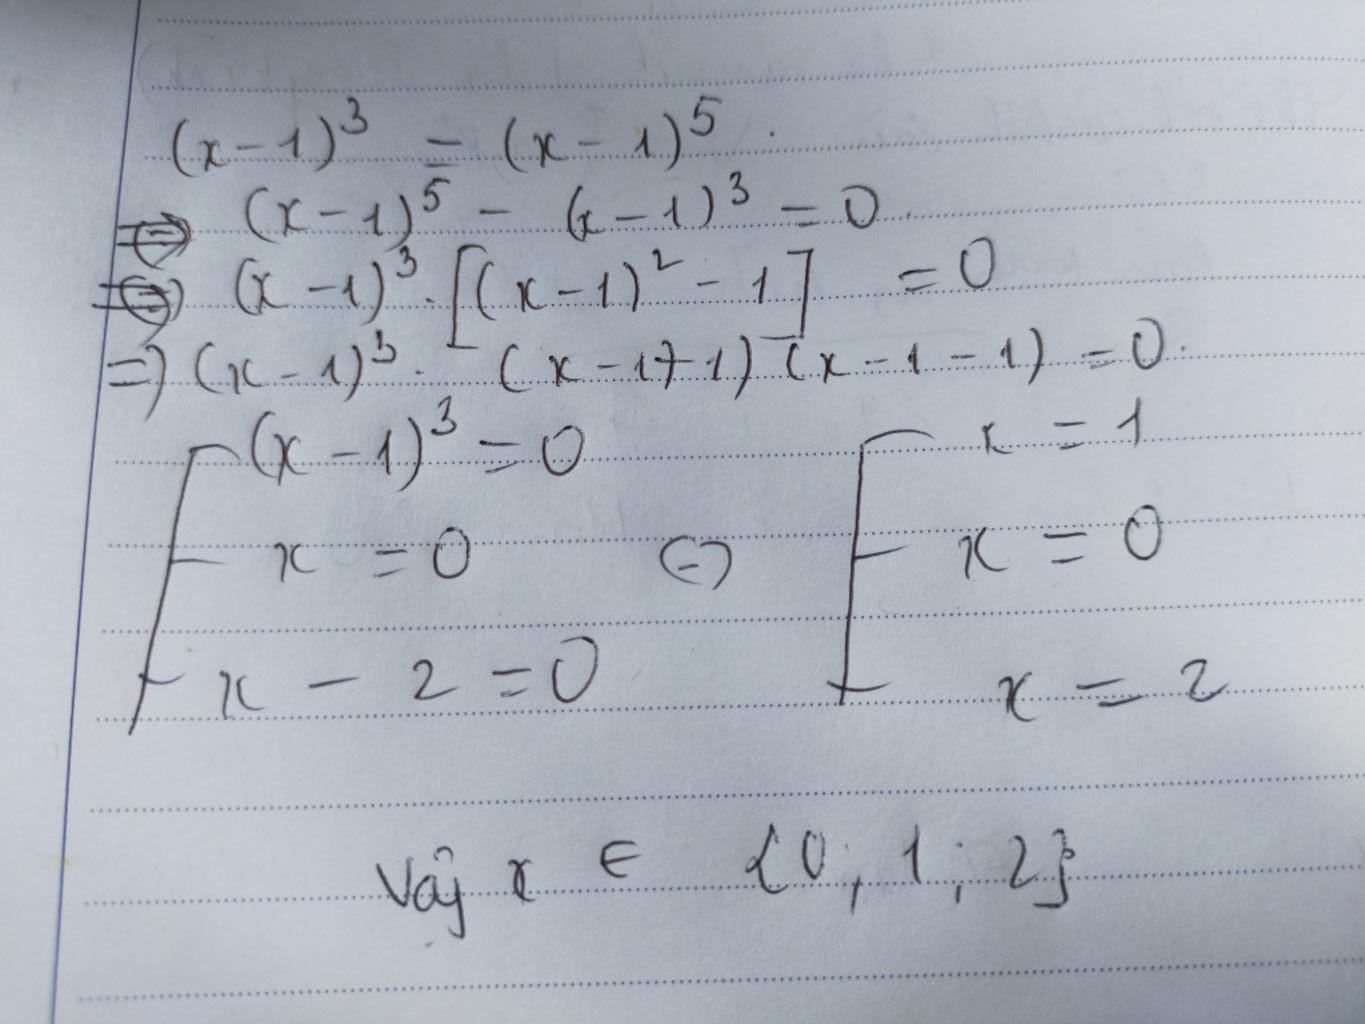 (x-1)³ = (x-1)⁵.
⇔ (x-1)⁵ - (x-1)³ = 0.
⇔ (x-1)³.[(x-1)² - 1] = 0
=> (x-1)³. (x-1+1) (x-1-1) = 0.
[ (x-1)³ = 0 [ x = 1
x = 0 ⇔ x = 0
x - 2 = 0 x = 2
Vậy x ∈ {0; 1; 2}